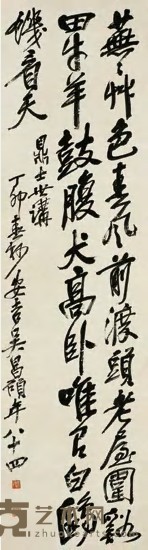 蕪〻艸色春風前渡頭老屋圍谿
田牛羊鼓腹犬高卧唯有白鷗
機看天
鼎士世講
丁卯春杪安吉吳昌碩年八十四